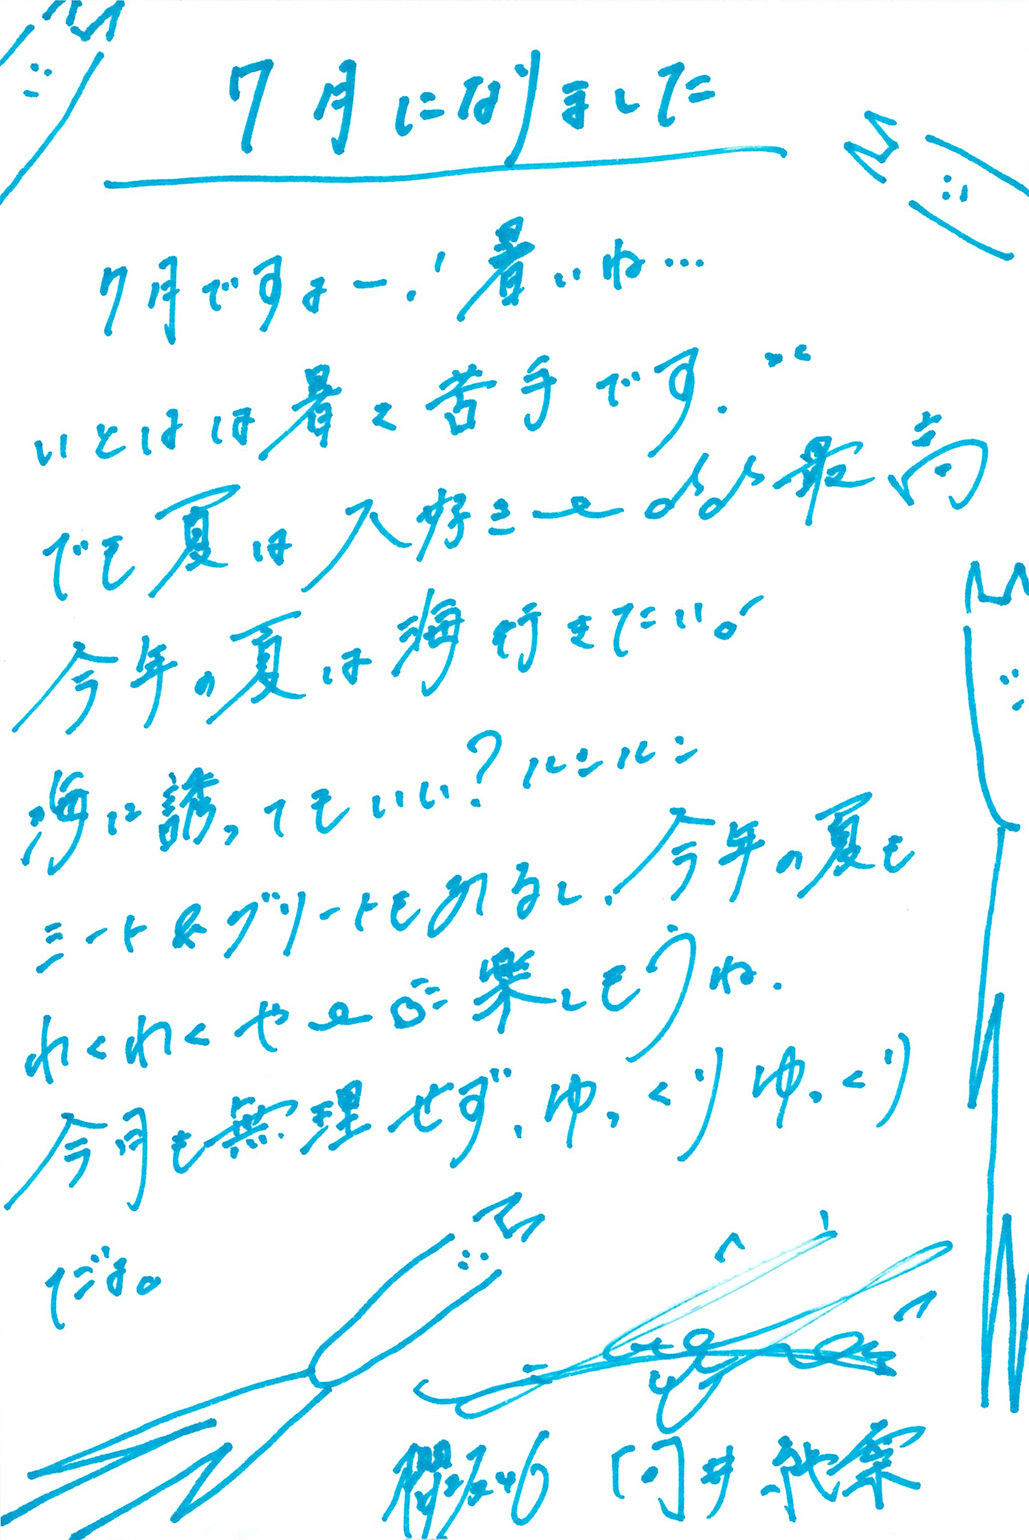 7月になりました
7月ですよー!暑いね…
いとはは暑く苦手です.
でも夏は大好き〜♪♪最高
今年の夏は海行きたい。
海に誘ってもいい?ルンルン
ミート&グリートもあるし、今年の夏も
わくわくや〜 楽しもうね.
今月も無理せず、ゆっくりゆっくり
だよ。
櫻坂46 向井純葉